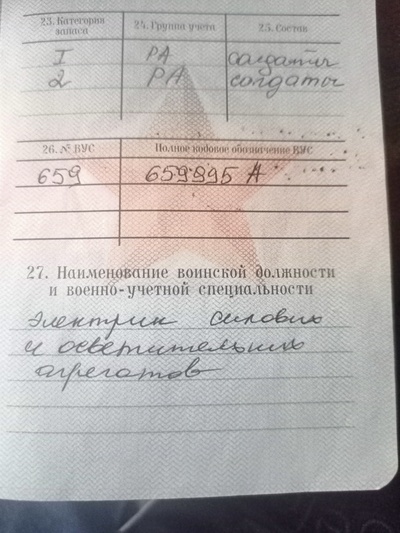 23. Категория запаса
24. Группа учета
25. Состав
I РА солдаты
2 РА солдаты
26. № ВУС
Полное кодовое обозначение ВУС
659 659995 А
27. Наименование воинской должности
и военно-учетной специальности
Электрик силовых
и осветительных
агрегатов